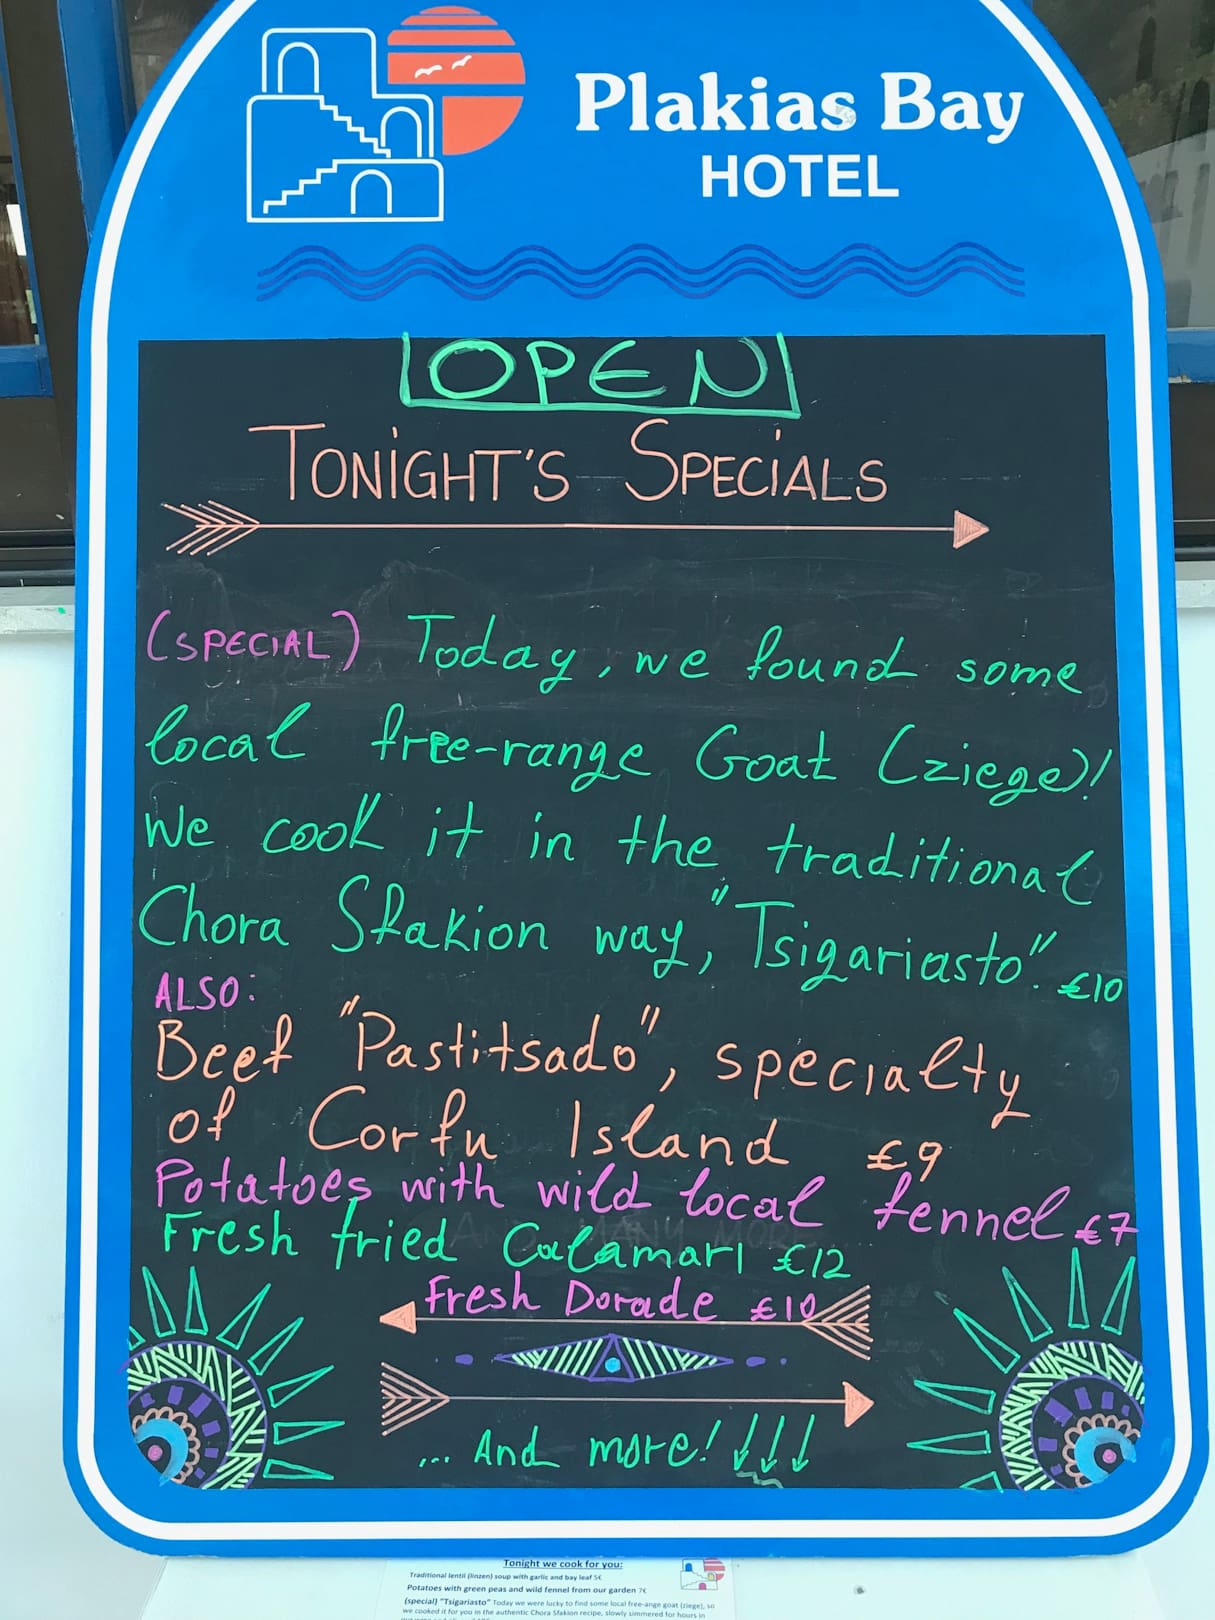 Plakias Bay
HOTEL
OPEN
TONIGHT'S SPECIALS
(SPECIAL) Today, we found some
local free-range Goat (ziege)!
We cook it in the traditional
Chora Sfakion way, "Tsigariasto". €10
ALSO:
Beef "Pastitsado", specialty
of Corfu Island €9
Potatoes with wild local fennel €7
AND MANY MORE...
Fresh fried Calamari €12
Fresh Dorade €10
... And more!
Tonight we cook for you:
Traditional lentil (linzen) soup with garlic and bay leaf 5€
Potatoes with green peas and wild fennel from our garden 7€
(special) "Tsigariasto" Today we were lucky to find some local free-ange goat (ziege), so
we cooked it for you in the authentic Chora Sfakion recipe, slowly simmered for hours in